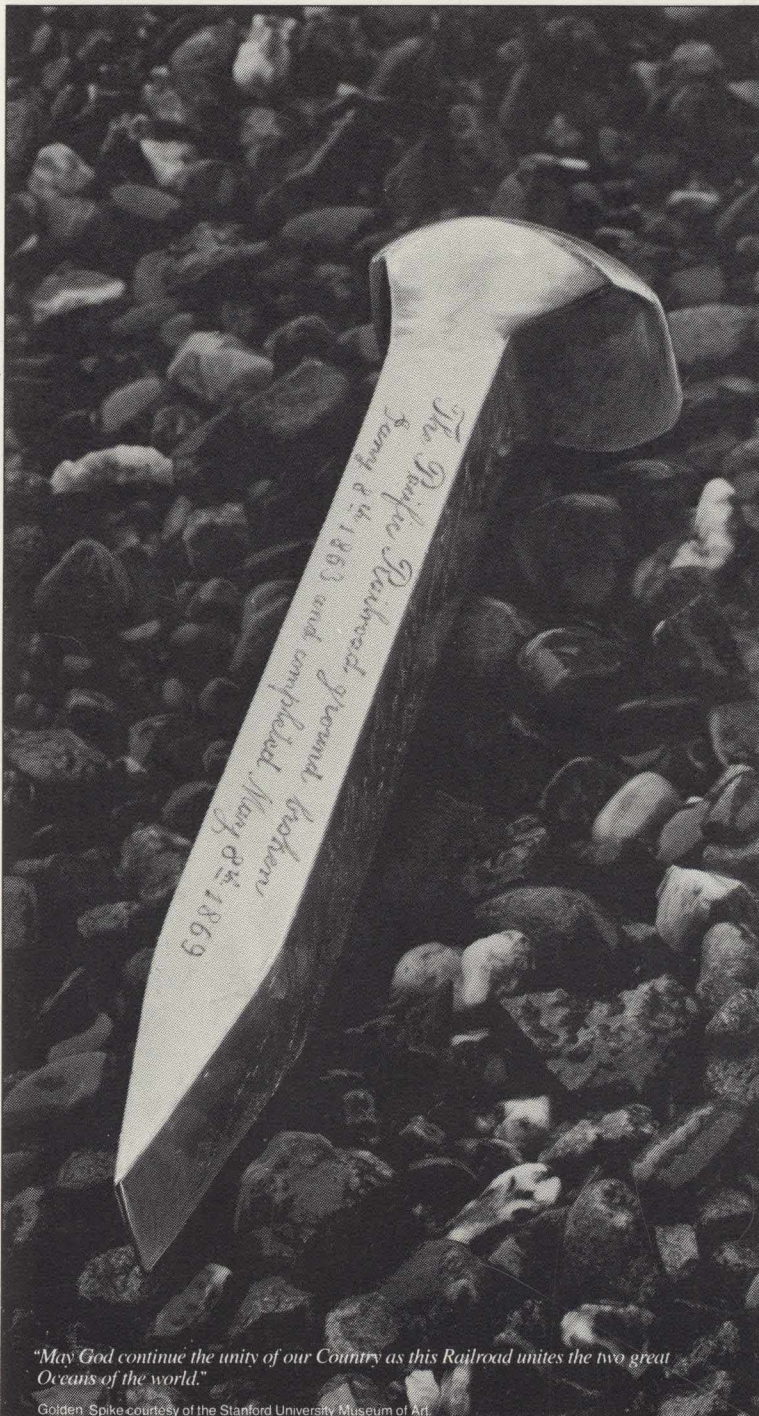 The Pacific Railroad ground broken
Jany 8th 1863 and completed May 8th 1869
"May God continue the unity of our Country as this Railroad unites the two great
Oceans of the world."
Golden Spike courtesy of the Stanford University Museum of Art.